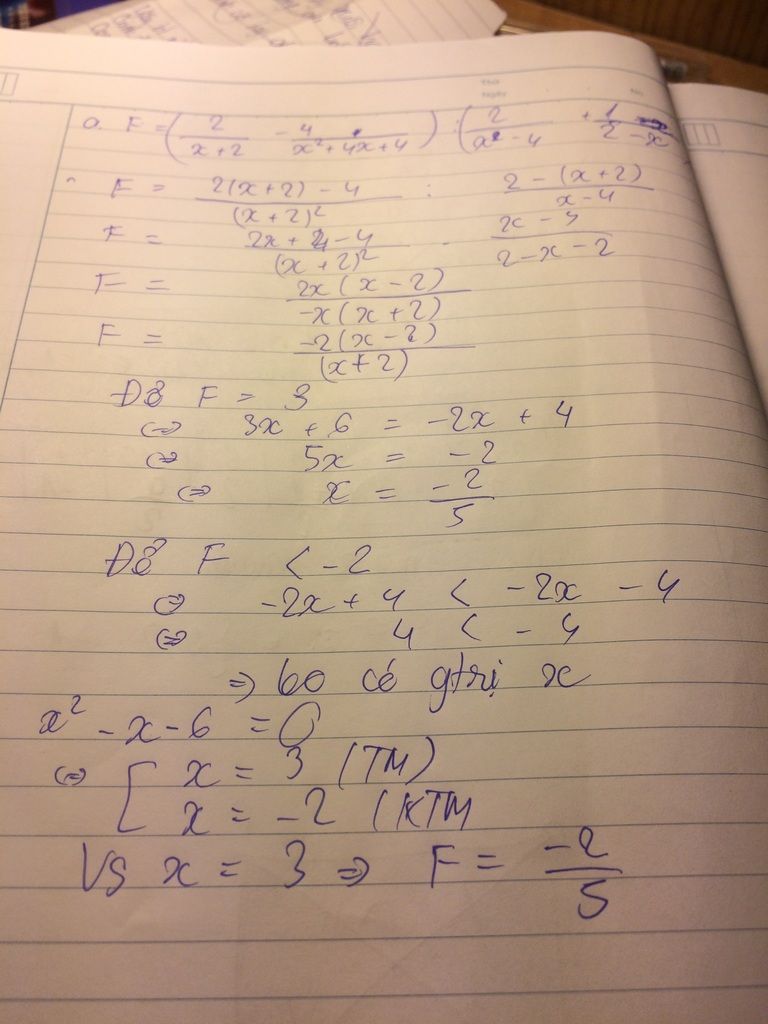 a. F = ( 2/(x+2) - 4/(x²+4x+4) ) : ( 2/(x²-4) + 1/(2-x)
F = (2(x+2) - 4)/(x+2)² : (2-(x+2))/(x-4)
F = (2x+4-4)/(x+2)² . (x-4)/(2-x-2)
F = 2x(x-2)/-x(x+2)
F = -2(x-2)/(x+2)
Để F = 3
⇔ 3x + 6 = -2x + 4
⇔ 5x = -2
⇔ x = -2/5
Để F < -2
⇔ -2x + 4 < -2x - 4
⇔ 4 < - 4
⇒ ko có gtrị x
x² - x - 6 = 0
⇔ [ x = 3 (TM)
x = -2 (KTM
Vs x = 3 ⇒ F = -2/5